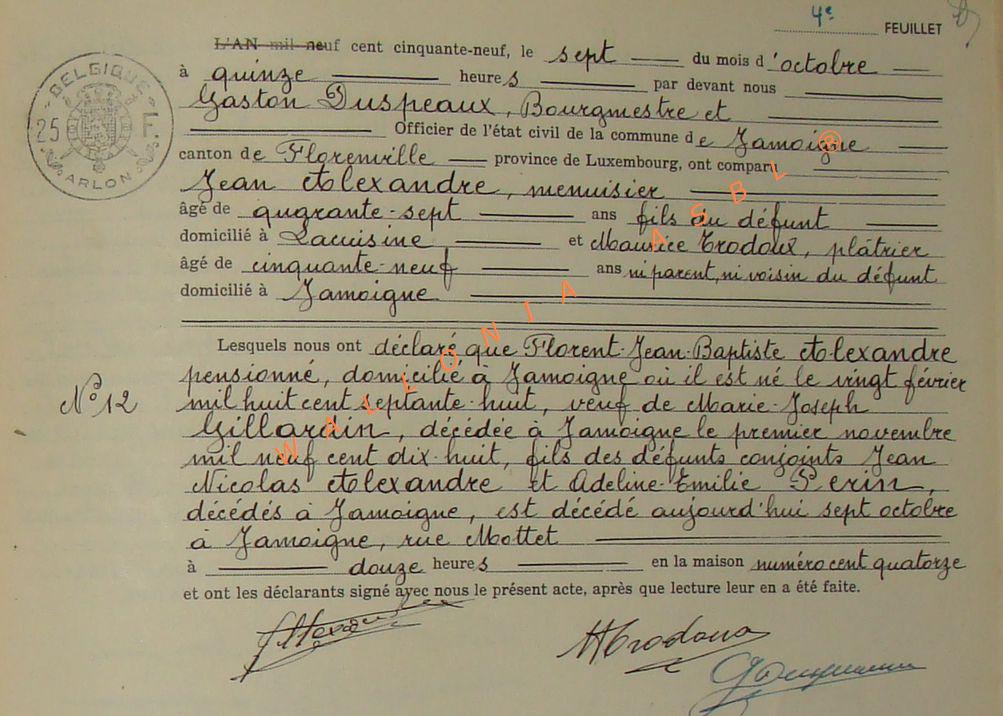 4e FEUILLET
L'AN mil neuf cent cinquante-neuf, le sept du mois d'octobre
à quinze heures par devant nous
Gaston Duspeaux, Bourgmestre et
Officier de l'état civil de la commune de Jamoigne
canton de Florenville province de Luxembourg, ont comparu
Jean Alexandre, menuisier
âgé de quarante-sept ans fils du défunt
domicilié à Lacuisine et Maurice Trodoux, plâtrier
âgé de cinquante-neuf ans ni parent, ni voisin du défunt
domicilié à Jamoigne
Lesquels nous ont déclaré que Florent-Jean-Baptiste Alexandre
pensionné, domicilié à Jamoigne où il est né le vingt février
mil huit cent septante-huit, veuf de Marie-Joseph
Gillardin, décédée à Jamoigne le premier novembre
mil neuf cent dix-huit, fils des défunts conjoints Jean
Nicolas Alexandre et Adeline-Emilie Perin,
décédés à Jamoigne, est décédé aujourd'hui sept octobre
à Jamoigne, rue Mottet
à douze heures en la maison numéro cent quatorze
et ont les déclarants signé avec nous le présent acte, après que lecture leur en a été faite.
N° 12
BELGIQUE
25 F.
ARLON
WALLONIA ASBL ®